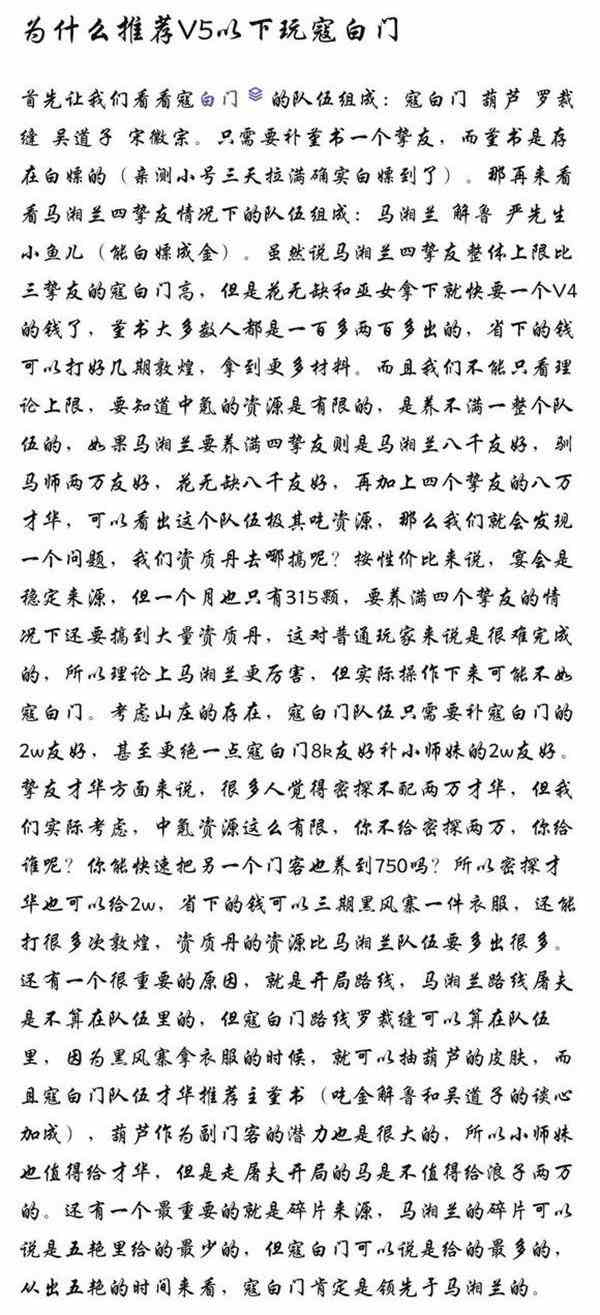 为什么推荐V5以下玩寇白门
首先让我们看看寇白门 的队伍组成：寇白门 葫芦 罗裁
缝 吴道子 宋徽宗。只需要补董书一个挚友，而董书是存
在白嫖的（亲测小号三天拉满确实白嫖到了）。那再来看
看马湘兰四挚友情况下的队伍组成：马湘兰 解鲁 严先生
小鱼儿（能白嫖成金）。虽然说马湘兰四挚友整体上限比
三挚友的寇白门高，但是花无缺和巫女拿下就快要一个V4
的钱了，董书大多数人都是一百多两百多出的，省下的钱
可以打好几期敦煌，拿到更多材料。而且我们不能只看理
论上限，要知道中氪的资源是有限的，是养不满一整个队
伍的，如果马湘兰要养满四挚友则是马湘兰八千友好，驯
马师两万友好，花无缺八千友好，再加上四个挚友的八万
才华，可以看出这个队伍极其吃资源，那么我们就会发现
一个问题，我们资质丹去哪搞呢？按性价比来说，宴会是
稳定来源，但一个月也只有315颗，要养满四个挚友的情
况下还要搞到大量资质丹，这对普通玩家来说是很难完成
的，所以理论上马湘兰更厉害，但实际操作下来可能不如
寇白门。考虑山庄的存在，寇白门队伍只需要补寇白门的
2w友好，甚至更绝一点寇白门8k友好补小师妹的2w友好。
挚友才华方面来说，很多人觉得密探不配两万才华，但我
们实际考虑，中氪资源这么有限，你不给密探两万，你给
谁呢？你能快速把另一个门客也养到750吗？所以密探才
华也可以给2w，省下的钱可以三期黑风寨一件衣服，还能
打很多次敦煌，资质丹的资源比马湘兰队伍要多出很多。
还有一个很重要的原因，就是开局路线，马湘兰路线屠夫
是不算在队伍里的，但寇白门路线罗裁缝可以算在队伍
里，因为黑风寨拿衣服的时候，就可以抽葫芦的皮肤，而
且寇白门队伍才华推荐主董书（吃金解鲁和吴道子的谈心
加成），葫芦作为副门客的潜力也是很大的，所以小师妹
也值得给才华，但是走屠夫开局的马是不值得给浪子两万
的。还有一个最重要的就是碎片来源，马湘兰的碎片可以
说是五艳里给的最少的，但寇白门可以说是给的最多的，
从出五艳的时间来看，寇白门肯定是领先于马湘兰的。